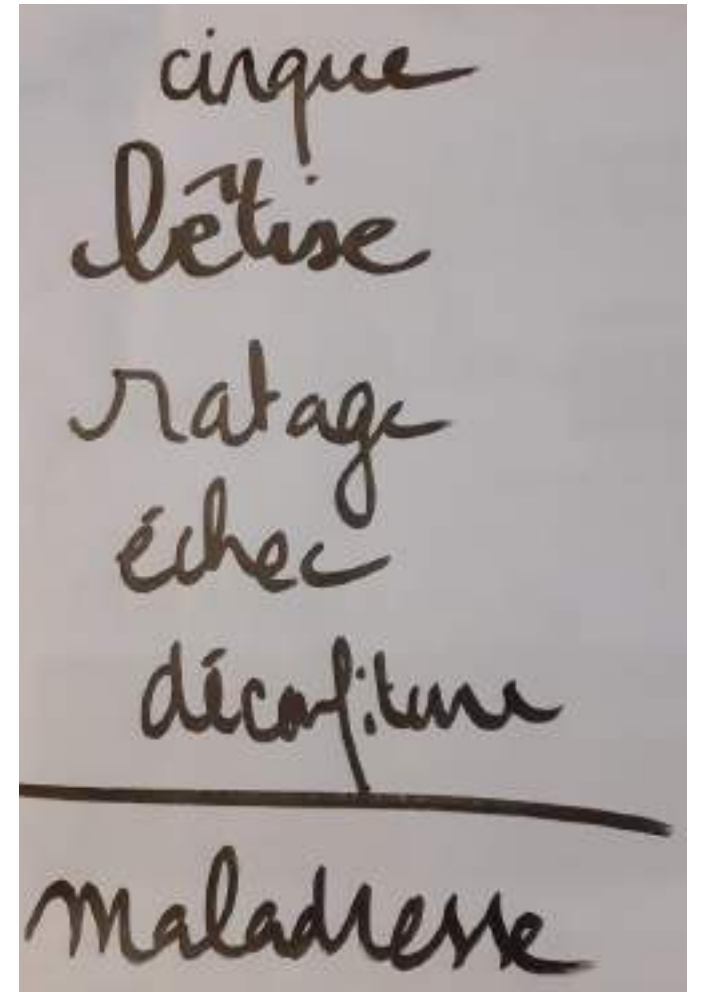 cirque
bêtise
ratage
échec
déconfiture
maladresse